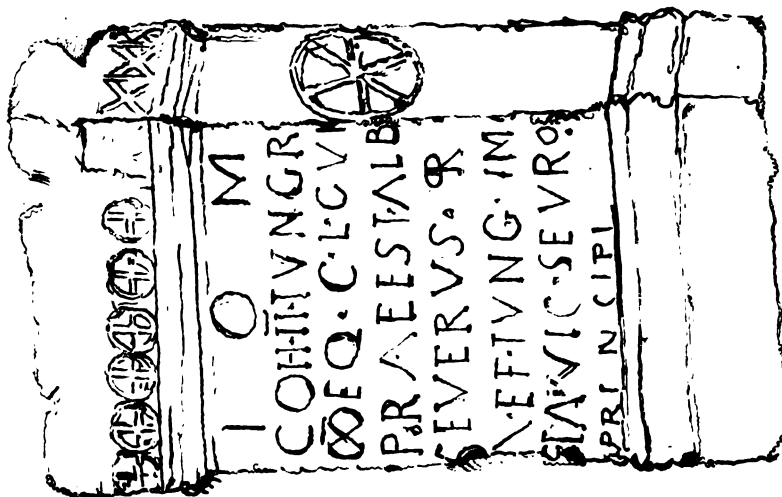 I O M
COH·II·TVNGR
∞ EQ·C·L·CVI
PRAEEST·ALB
SEVERVS·PR
AEF·TVNG·IM
SEVRO
PRINCIPI